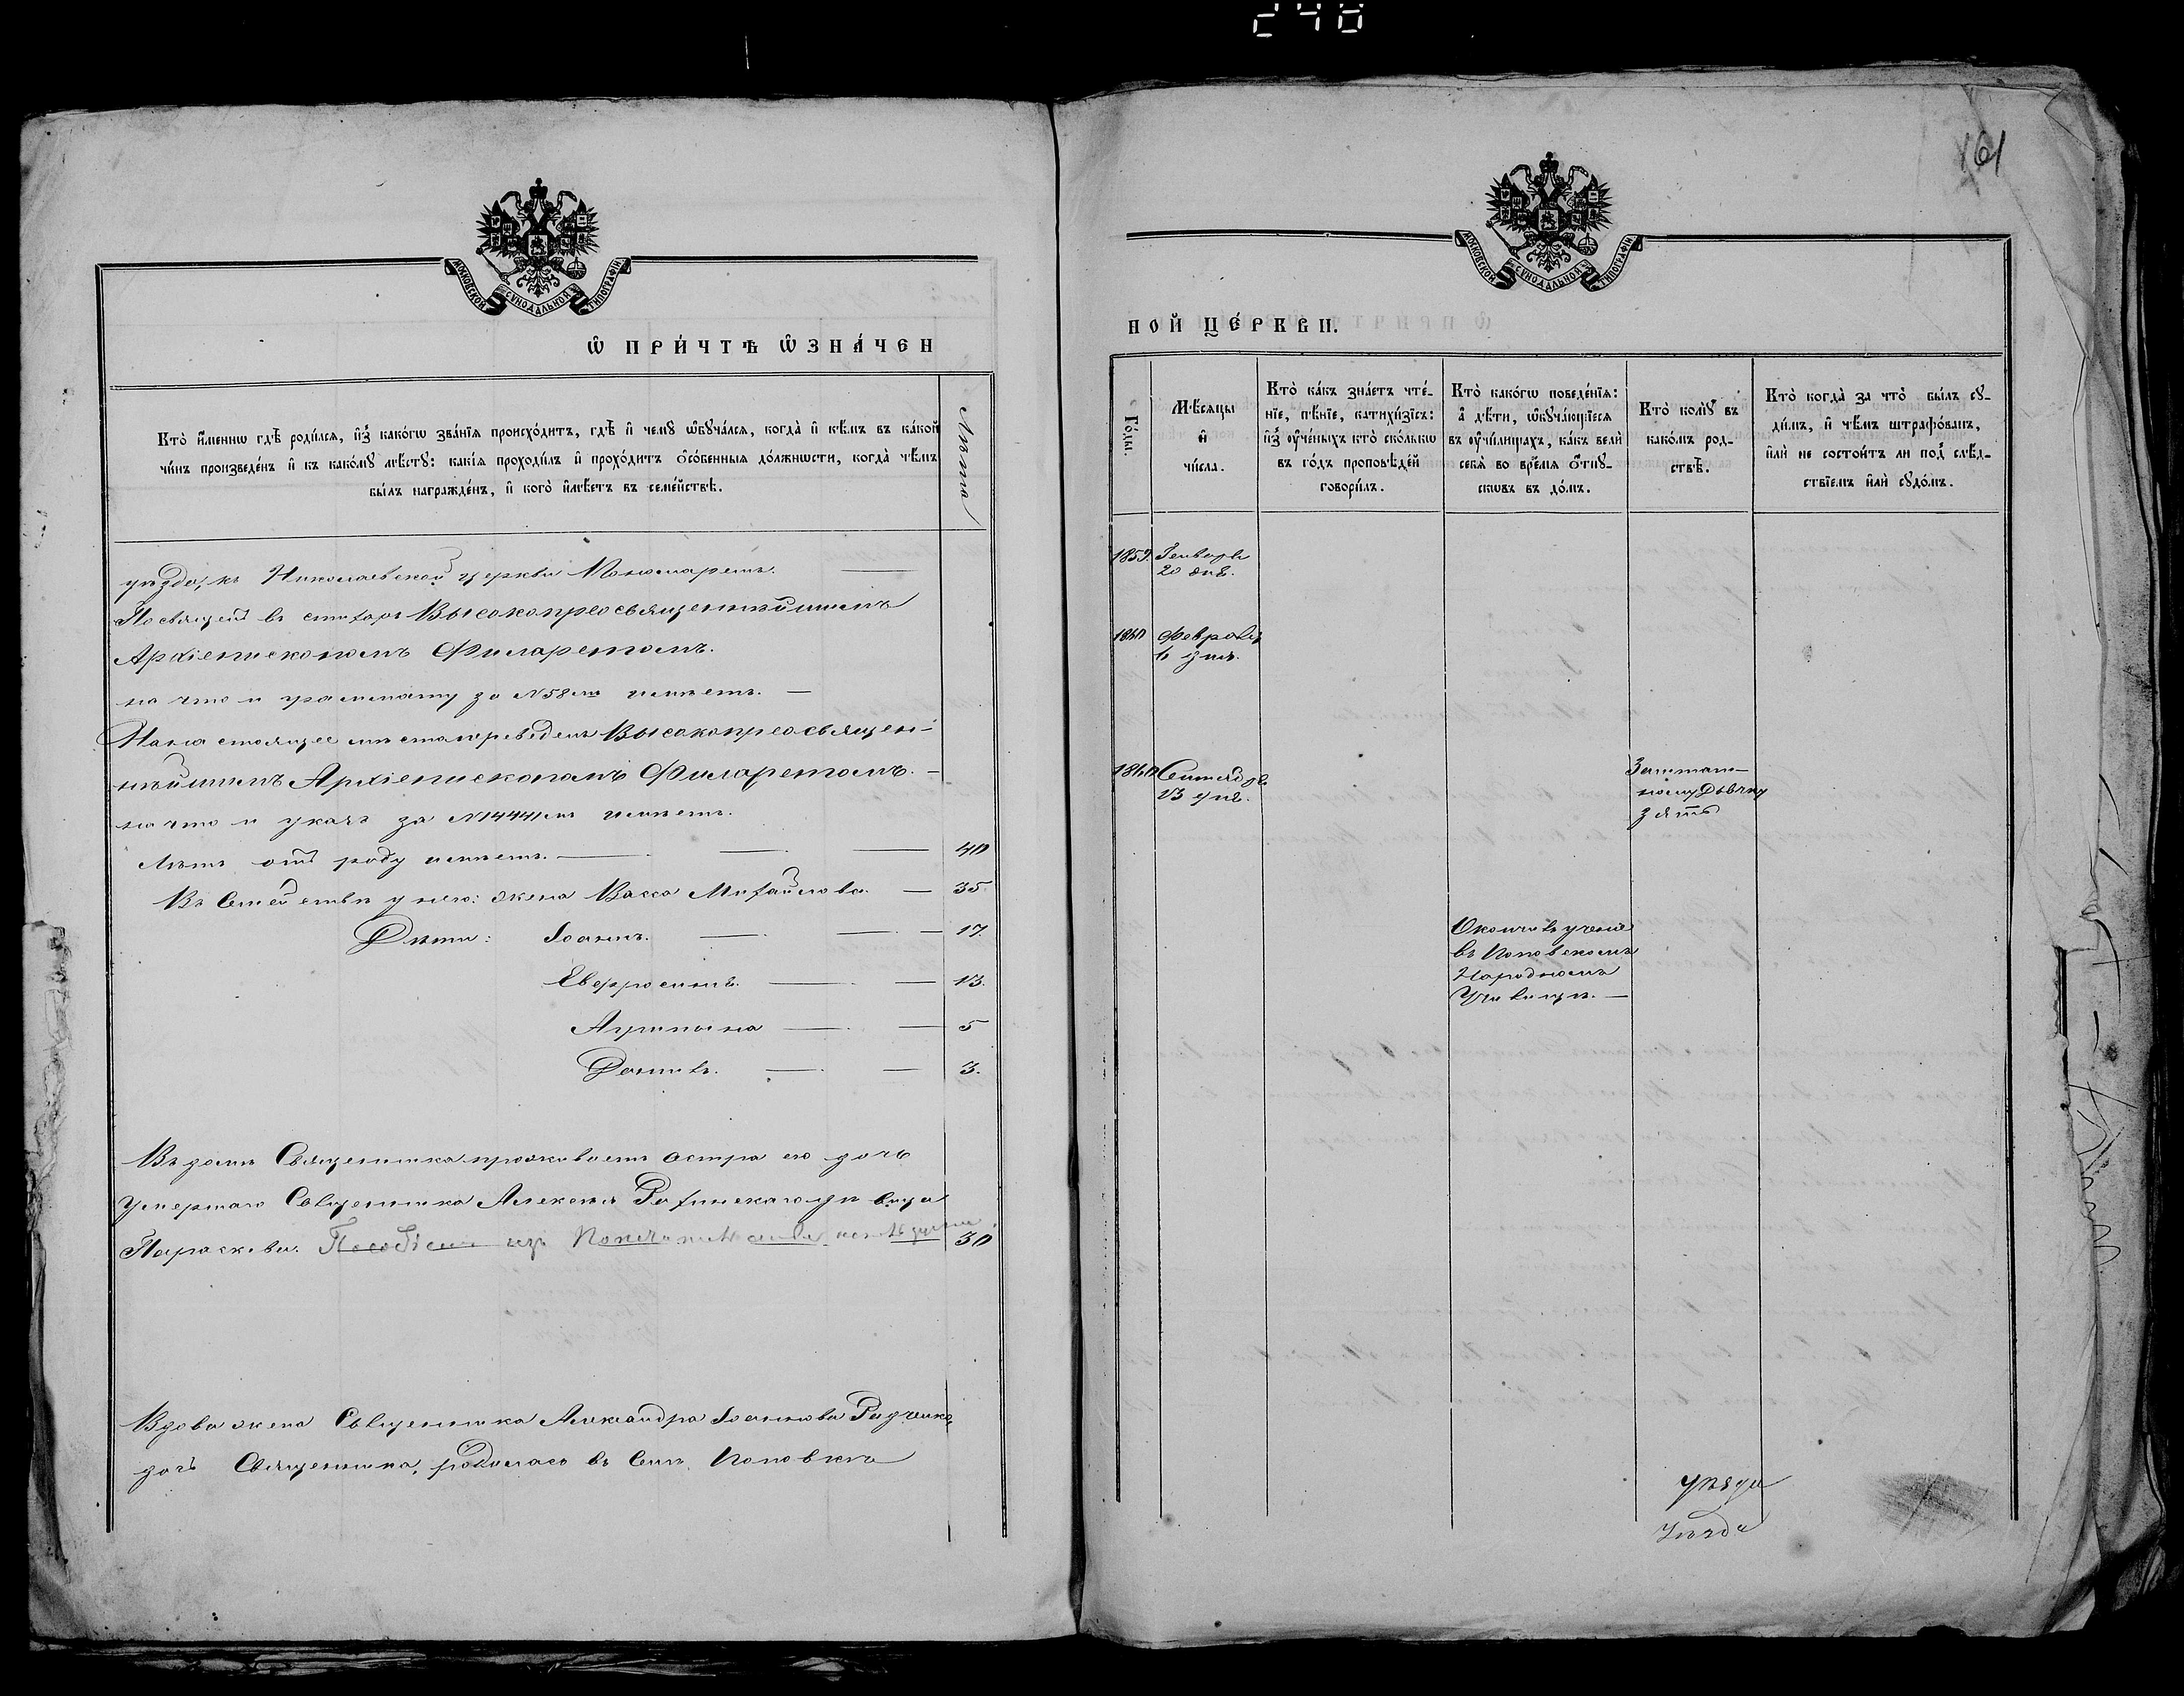 248
161
МОСКОВСКОЙ СѴНОДАЛЬНОЙ ТИПОГРАФІИ
Ѡ ПРИ́ЧТѢ Ѡ҆ЗНА́ЧЕН
Кто̀ и҆́меннѡ гдѣ̀ роди́лся, и҆з̾ како́гѡ зва́нїя происхо́дитъ, гдѣ̀ и҆ чемꙋ̀ ѡ҆бꙋча́лся, когда̀ и҆ кѣ́мъ въ како́й
чи́нъ произведе́нъ и҆ къ како́мꙋ мѣ́стꙋ: какі́я проходи́лъ и҆ прохо́дитъ ѻ҆со́бенныя до́лжнѡсти, когда̀ чѣ́мъ
бы́лъ награжде́нъ, и҆ кого̀ и҆мѣ́етъ въ семе́йствѣ.
Лѣта
уѣзда, къ Николаевской церкви Пономаремъ.
Посвященъ въ стихарь Высокопреосвященнѣйшимъ
Архіепископомъ Филаретомъ.
на что и грammату за №58мъ имѣетъ. —
На настоящее мѣсто переведенъ Высокопреосвящен-
нѣйшимъ Архіепископомъ Филаретомъ. —
на что и указъ за №14441мъ имѣетъ.
Лѣтъ отъ роду имѣетъ. — — — 40
Въ Семействѣ у него: жена Васса Михайлова. — 35
Дѣти: Іоаннъ. — — — 17.
Евфросинъ. — — 13.
Агрипина — — 5
Даниилъ. — — 3.
Въ домѣ Священника проживаетъ сестра его дочь
умершаго Священника Алексѣя дѣвица
Параскева. Пособіемъ изъ Попечительства 30
Вдова жена Священника Александра Іоаннова Радченка,
дочь Священника, родилась въ Селѣ Поповкѣ
НОЙ ЦЕ́РКВИ.
Го́ды.
Мѣ́сяцы
и҆
чи́сла.
Кто̀ ка́къ зна́етъ чте́-
нїе, пѣ́нїе, катихи́зїсъ:
и҆з̾ ᲂу҆че́ныхъ кто̀ ско́лькѡ
въ го́дъ проповѣ́дей
говори́лъ.
Кто̀ како́гѡ поведе́нїя:
а҆ дѣ́ти, ѡ҆бꙋча́ющїеся
въ ᲂу҆чи́лищахъ, ка́къ велѝ
себѧ̀ во вре́мя ѿпꙋ-
сковъ въ до́мъ.
Кто̀ комꙋ̀ въ
како́мъ род-
ствѣ̀.
Кто̀ когда̀ за что̀ бы́лъ сꙋ-
ди́мъ, и҆ чѣ́мъ штрафо́ванъ,
и҆лѝ не состои́тъ ли под̾ слѣ́д-
ствїемъ и҆лѝ сꙋдо́мъ.
1859. Генваря
20 дня.
1860 Февраля
6 дня.
1860 Сентября
13 дня.
Заштат-
ному Дьячку
зять
Окончилъ ученіе
въ Поповскомъ
Народномъ
Училищѣ. —
уѣзда
Уѣзда